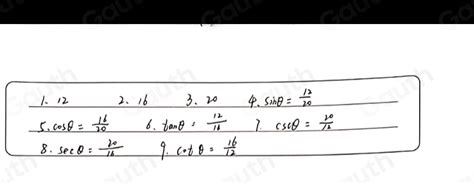 1. 12 2. 16 3. 20 4. sinθ = 12/20
5. cosθ = 16/20 6. tanθ = 12/16 7. cscθ = 20/12
8. secθ = 20/16 9. cotθ = 16/12